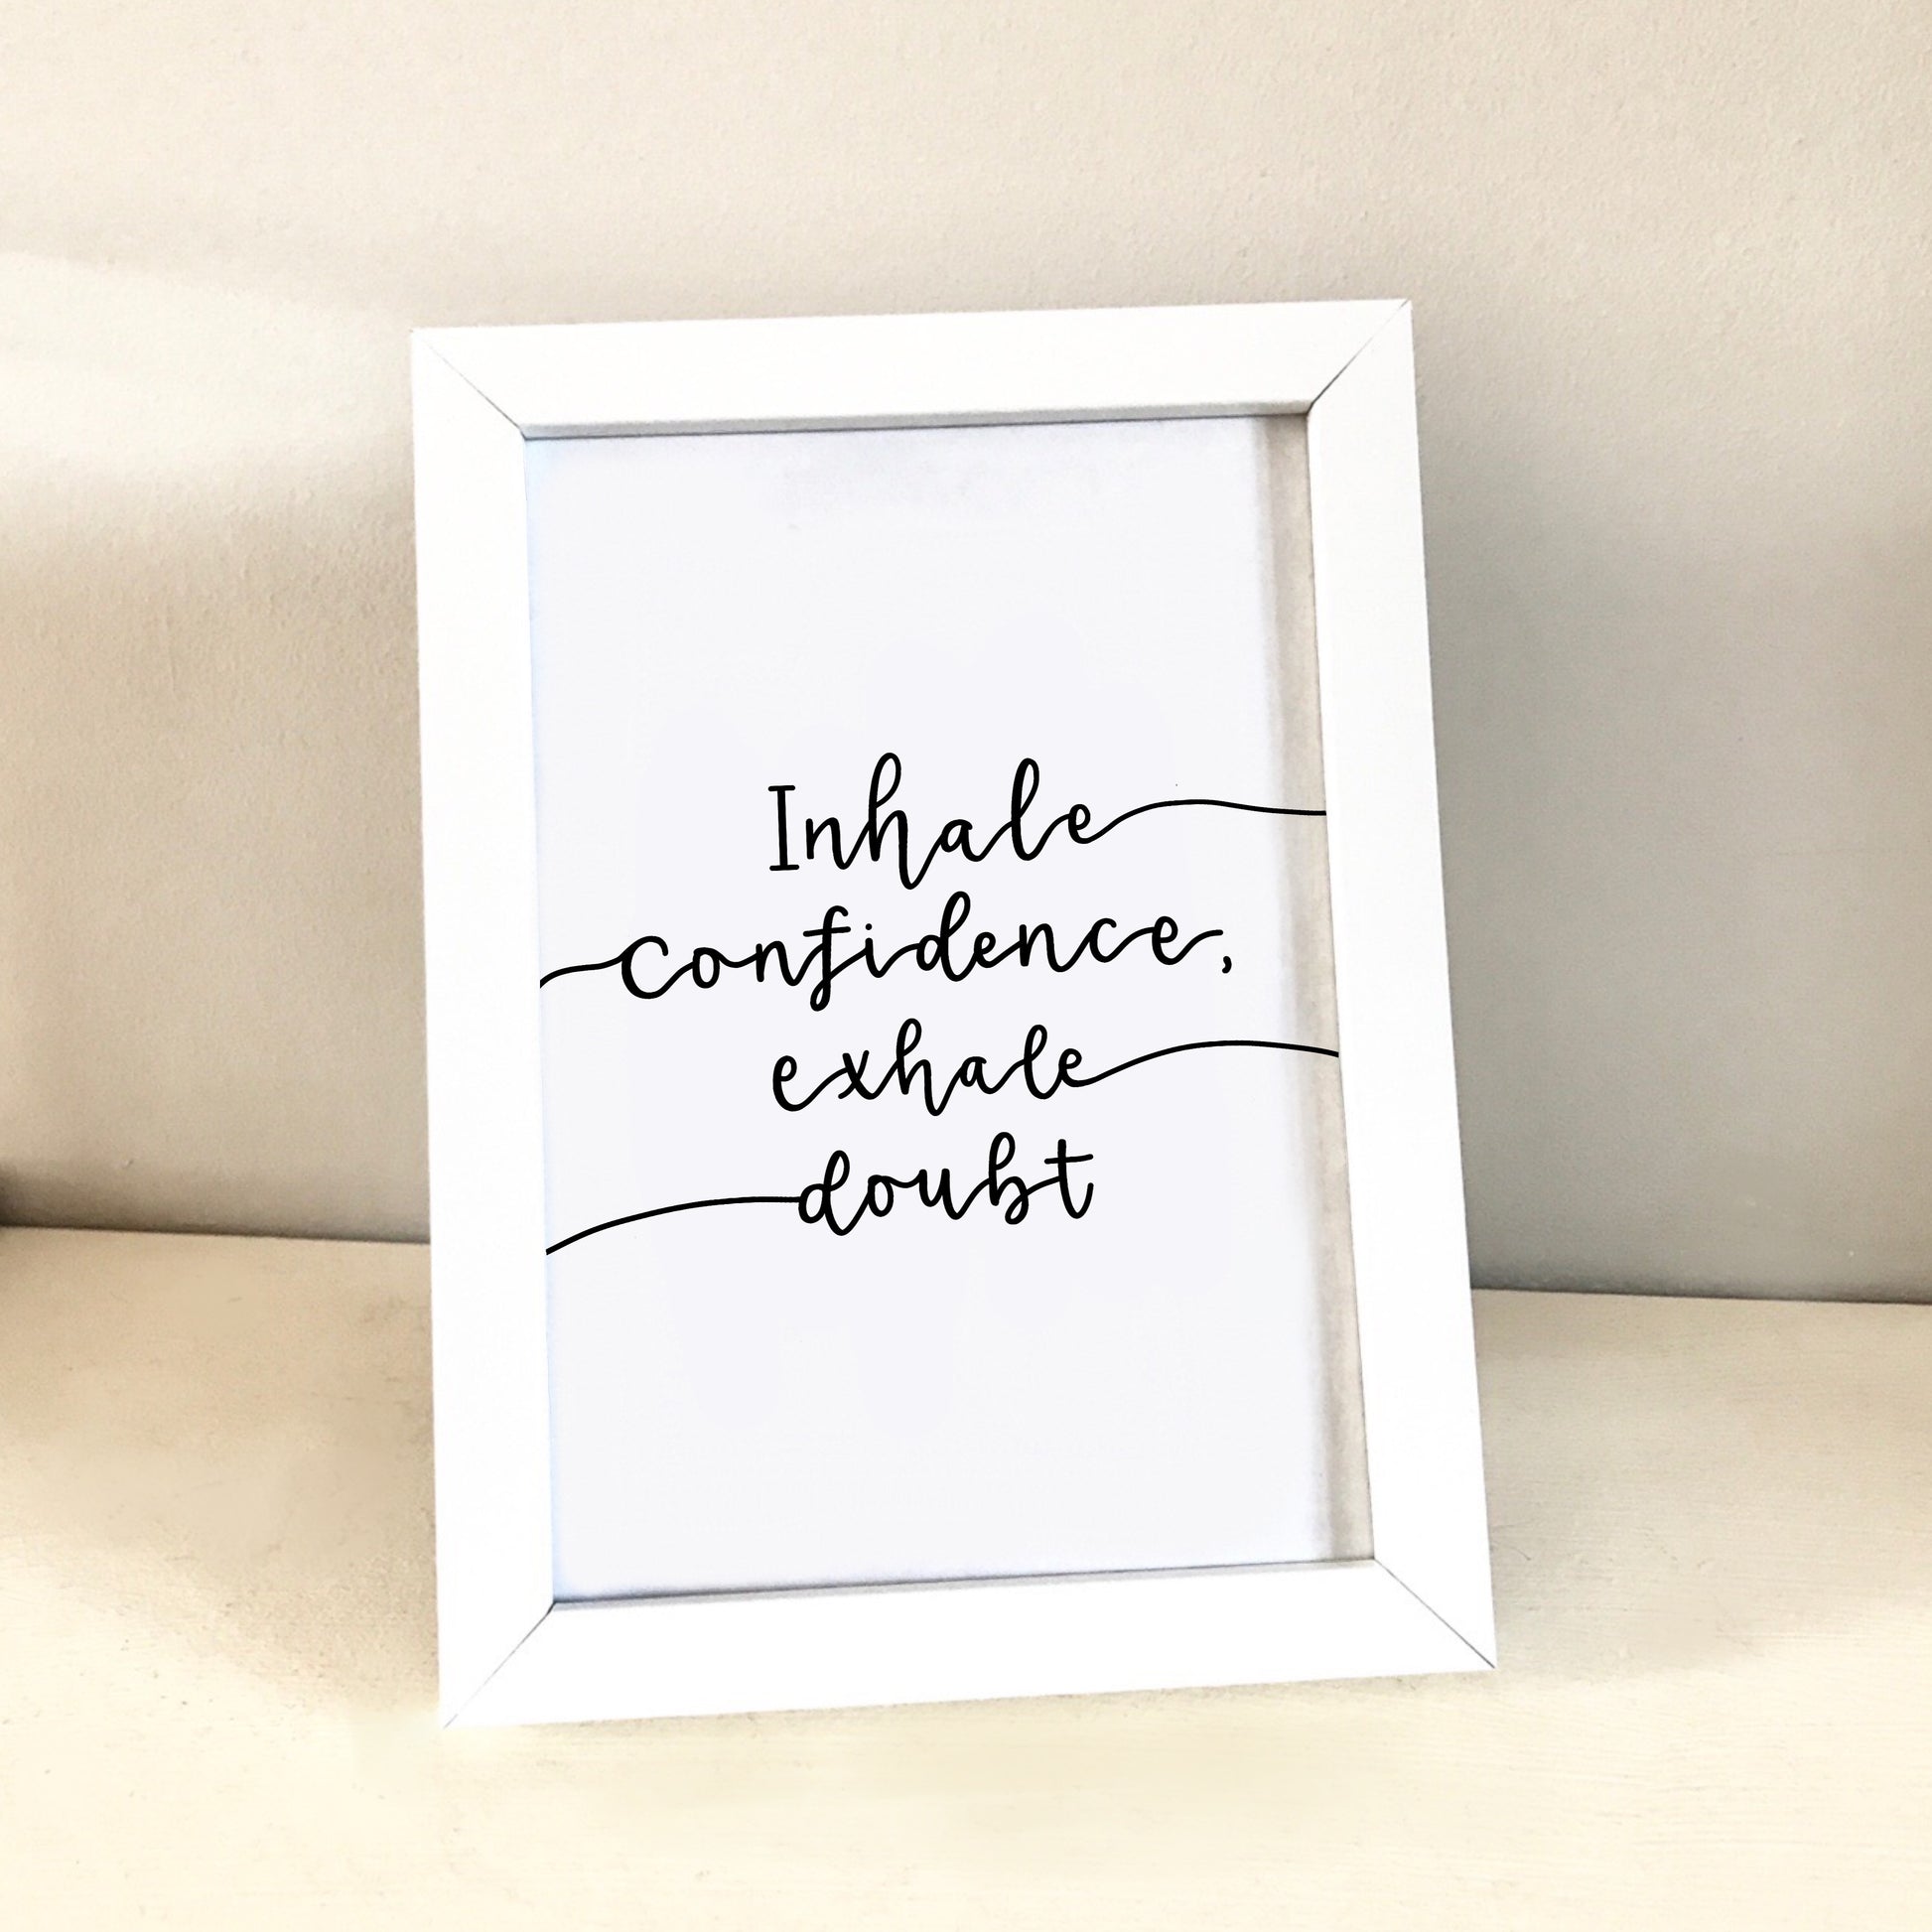 Inhale
confidence,
exhale
doubt